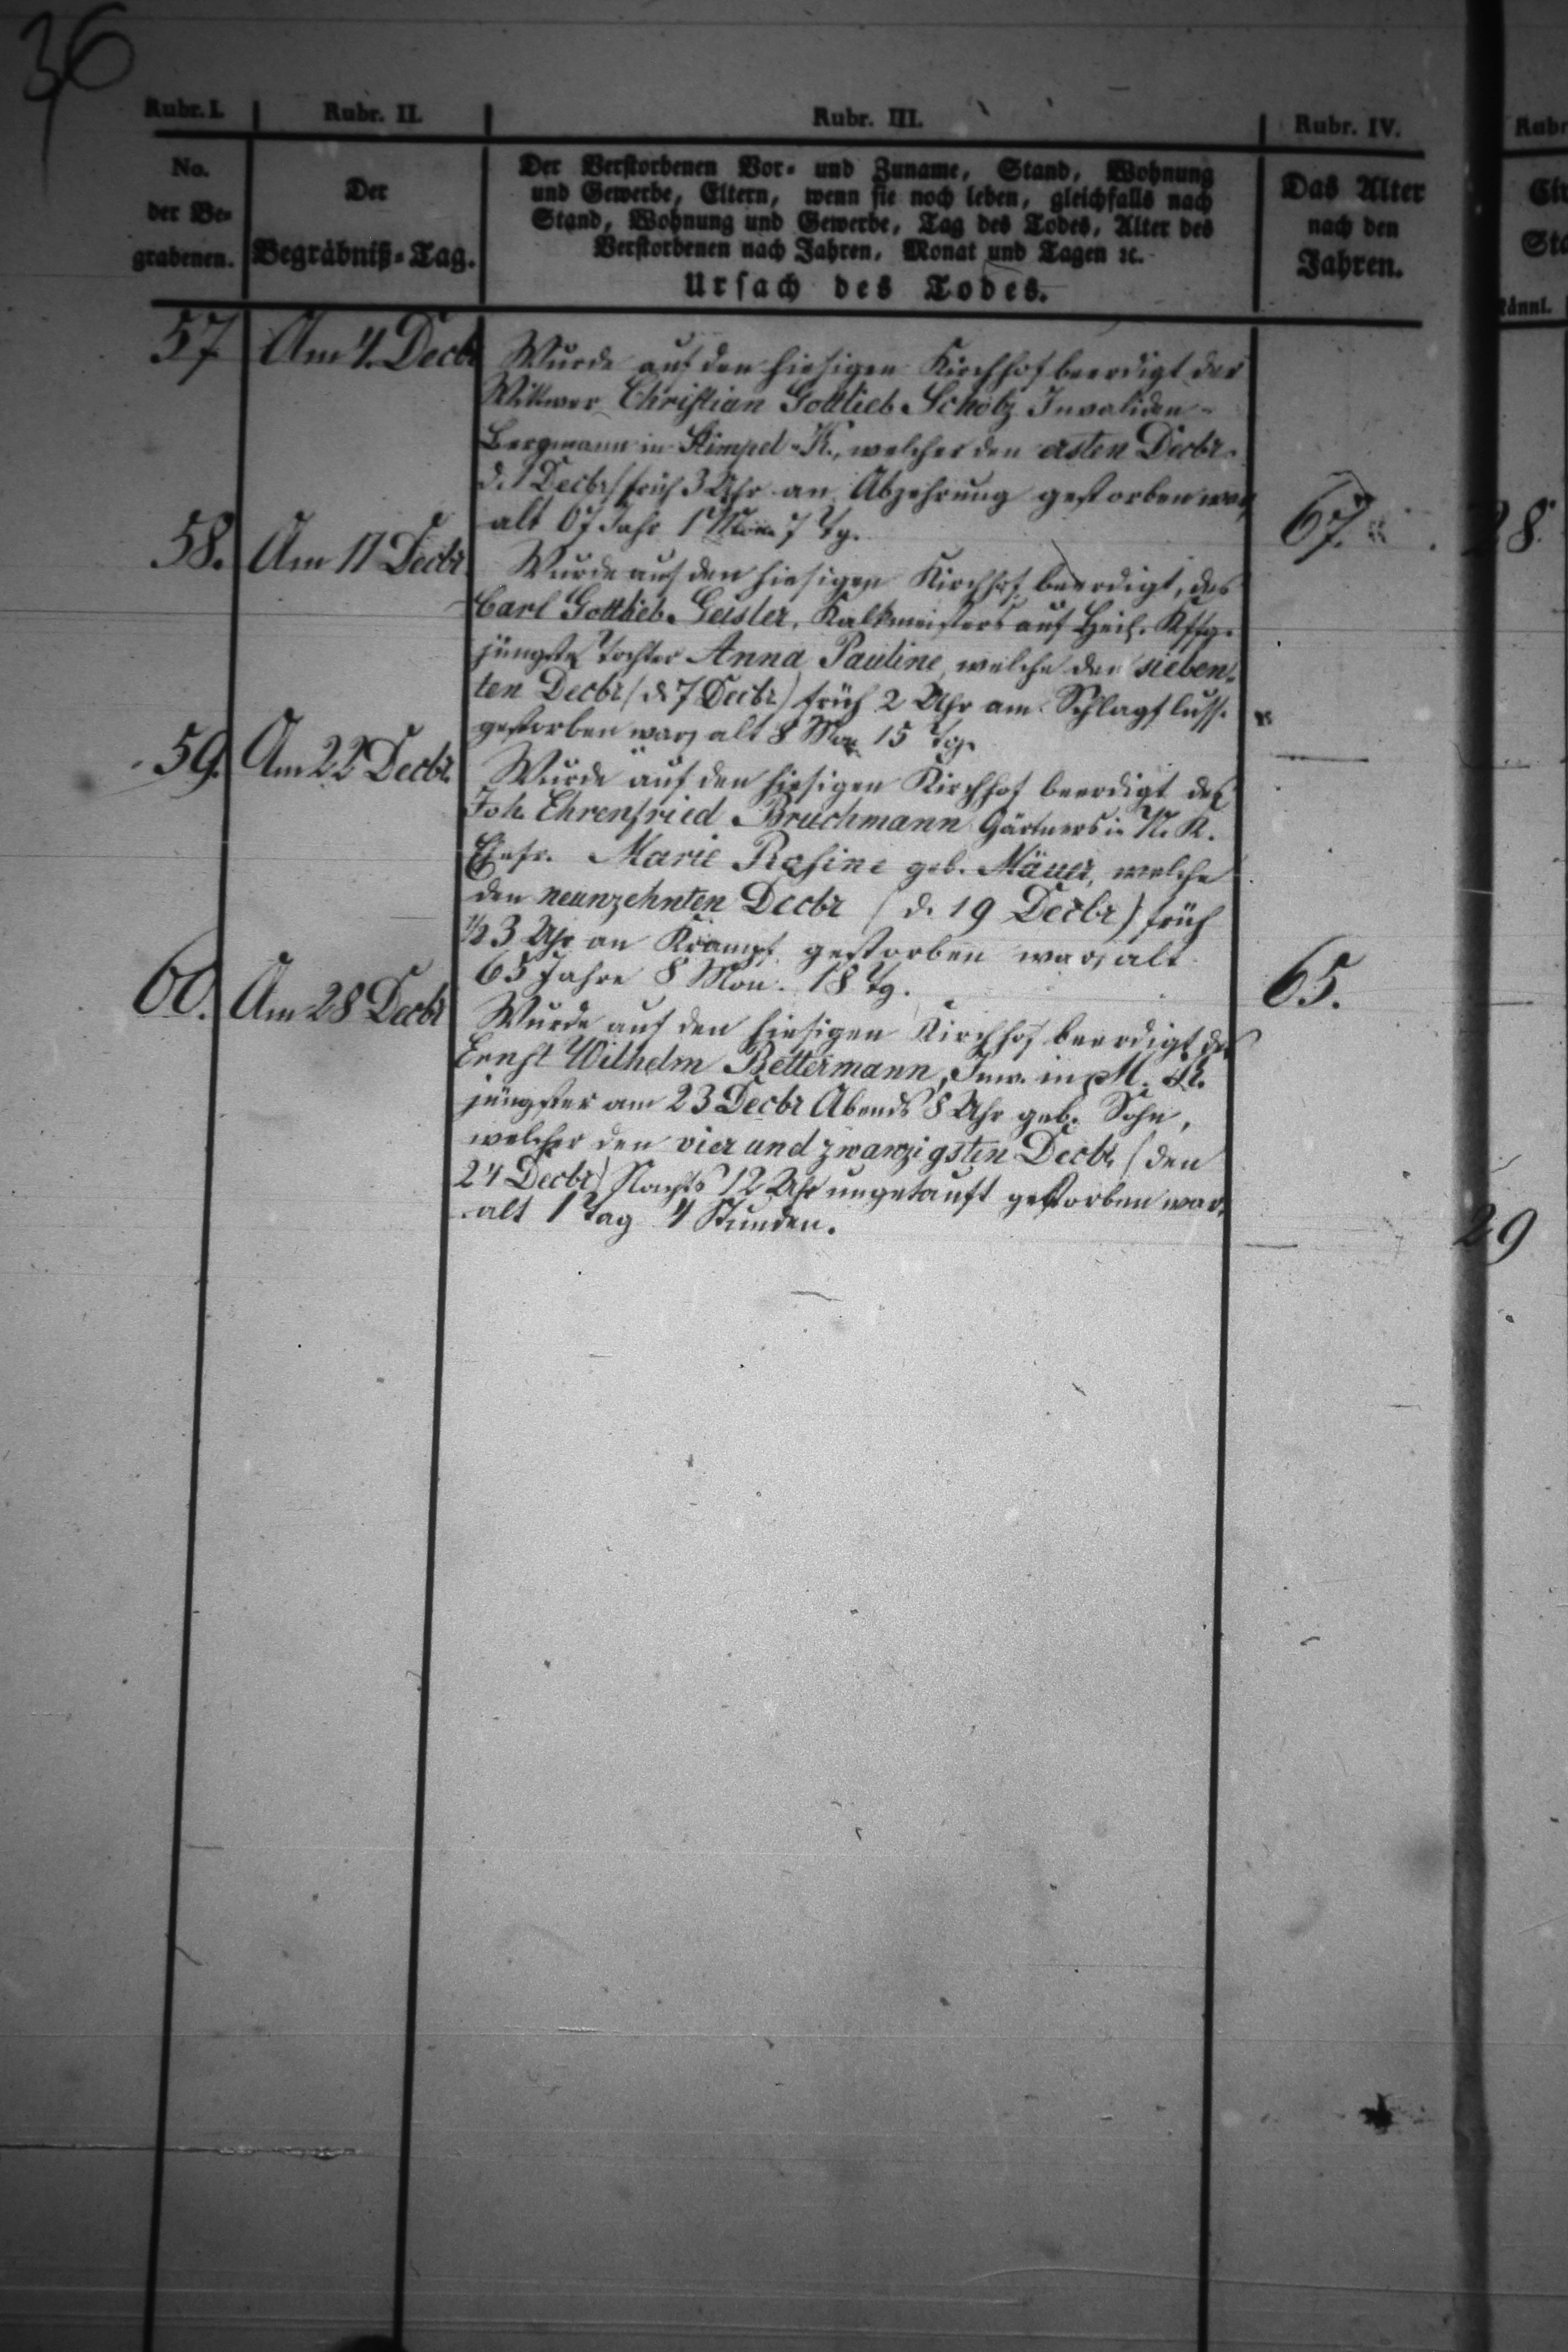 36
Rubr. I. Rubr. II. Rubr. III. Rubr. IV. Rubr
No.
der Be-
grabenen.
Der
Begräbniß-Tag.
Der Verstorbenen Vor- und Zuname, Stand, Wohnung
und Gewerbe, Eltern, wenn sie noch leben, gleichfalls nach
Stand, Wohnung und Gewerbe, Tag des Todes, Alter des
Verstorbenen nach Jahren, Monat und Tagen ꝛc.
Ursach des Todes.
Das Alter
nach den
Jahren.
57 Am 4. Decbr
Wurde auf den hiesigen Kirchhof beerdigt der
Wittwer Christian Gottlieb Scholz Invaliden-
Bergmann in -K., welcher den ersten Decbr.
d. 1 Decbr) früh 3 Uhr an Abzehrung gestorben war,
alt 67 Jahr 1 Mon. 7 Tg.
67.
28.
58. Am 11 Decbr.
Wurde auf den hiesigen Kirchhof beerdigt, des
Carl Gottlieb Geisler, Kalkmeisters auf
jüngste Tochter Anna Pauline, welche den sieben-
ten Decbr (d. 7 Decbr) früh 2 Uhr am Schlagfluss.
gestorben war, alt 8 Mon 15 Tg.
59. Am 22 Decbr.
Wurde auf den hiesigen Kirchhof beerdigt des
Joh. Ehrenfried Bruchmann Gärtners in N. K.
Ehefr. Marie Rosine geb. Mäuer, welche
den neunzehnten Decbr (d. 19 Decbr) früh
1/2 3 Uhr an Krampf gestorben war, alt
65 Jahre 8 Mon. 18 Tg.
65.
60. Am 28 Decbr
Wurde auf den hiesigen Kirchhof beerdigt des
Ernst Wilhelm Bettermann, Inw. in M. K.
jüngster am 23 Decbr Abends 8 Uhr geb. Sohn,
welcher den vier und zwanzigsten Decbr. (den
24 Decbr) Nachts 12 Uhr ungetauft gestorben war,
alt 1 Tag 4 Stunden.
29